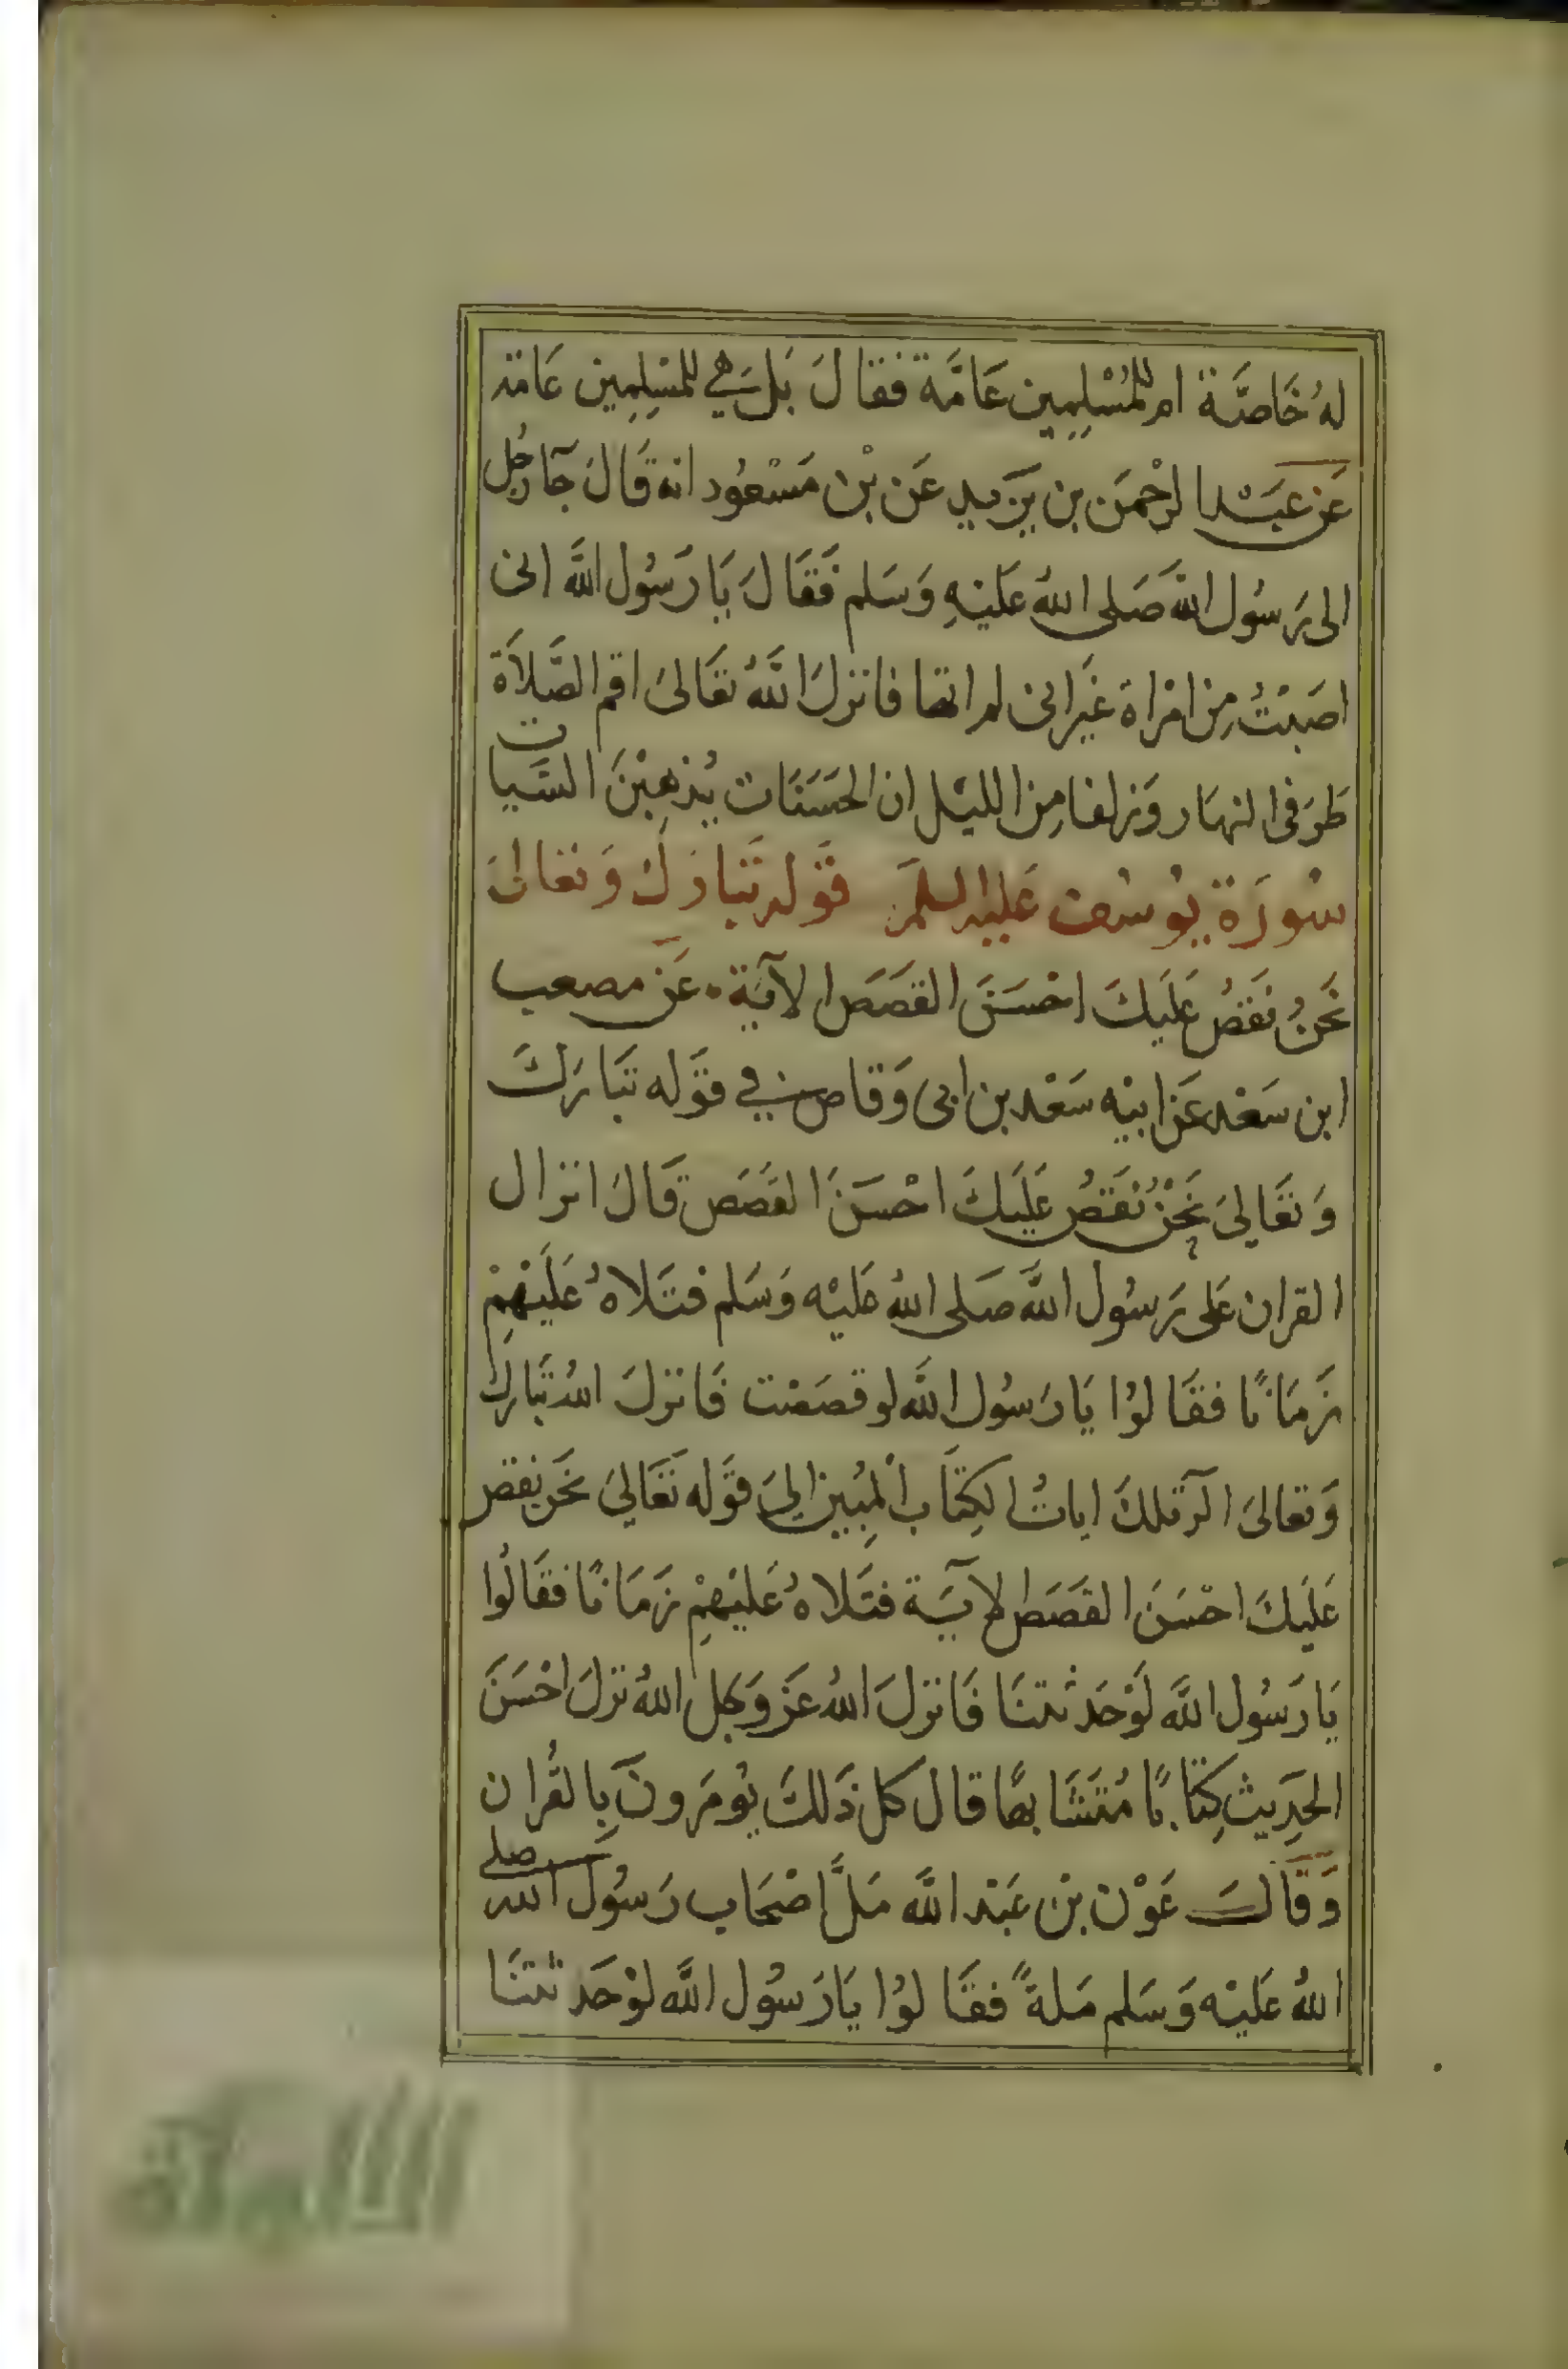 لهُ خَاصَّة ام للمُسْلِمِين عَامَّة فقَا لَ بَل هِي للمُسِلِمِين عَامّة
عَن عَبْد الرحْمَن بن يَزيد عَن بْن مَسْعُود انه قَالَ جآ رجُل
الى رَسُول الله صَلى اللهُ عَليْهِ وَسَلم فَقَا لَ يَا رَسُول اللَّه انى
اصَبْتُ مِن امْراة غَير انى لم اتها فا نزلَ اللَّهُ تعَالىَ اقم الصَّلاَة
طرَ فى النهَار وَزلفا مِن الليْل ان الحَسَنَات يُذهِبْنَ السَّيات
سُورَة يُوسُف عَليه السلم قَوله تَبَارَكَ وَتعَالىَ
نحَنُ نَقصُ عَليَكَ احْسَنَ القصَصَ الآيَة ۰ عَن مصعب
ابن سَعْد عَن ابيْه سَعْد بن ابى وَقاص في قوَله تبَارَكَ
وَتعَاليَ نَحْنُ نَقصُ عَليَكَ احْسَنَ القصَصَ قَالَ انزال
القران عَلى رَسُول اللَّه صَلى اللهُ عَليْه وَسَلم فتَلاهُ عَلَيْهِمْ
زَمَانًا فقَا لوُا يَا رَسُول اللَّه لو قصَصْت فَا نزلَ اللهُ تبَارك
وَتعالىَ الر تلكَ اياتُ الكِتَاب المُبِين اِليَ قوَله تعَاليَ نحَن نقص
عَليَكَ احْسَنَ القصَصَ الآيَة فتَلاهُ عَليْهِمْ زَمَا نًا فقَالُوا
يَا رَسُول اللَّه لَوْ حَدثتنَا فَا نزلَ اللهُ عَز وَجَل اللهُ نزلَ احْسَنَ
الحَدِيث كِتَابًا مُتَشَابهًا قال كل ذَلكَ يُومَرونَ بِالقُران
وَقَالَ عَوْن بْن عَبْد اللَّه مَلَّ اصْحَاب رَسُول الله صلى
اللهُ عَليْه وَسَلم مَلةً فقَا لوُا يَا رَسُول اللَّه لوْ حَد ثتنَا